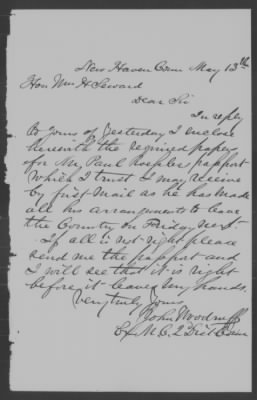 New Haven Conn May 13th
Hon Wm H Seward
Dear Sir
In reply
to yours of yesterday I enclose
herewith the required papers
for Mr. Paul Roesslers passport
which I trust I may receive
by first mail as he has made
all his arrangements to leave
the Country on Friday next.
If all is not right please
send me the passport and
I will see that it is right
before it leaves my hands.
Very truly Yours
John Woodruff
Ex M.C. 2 Dist Conn